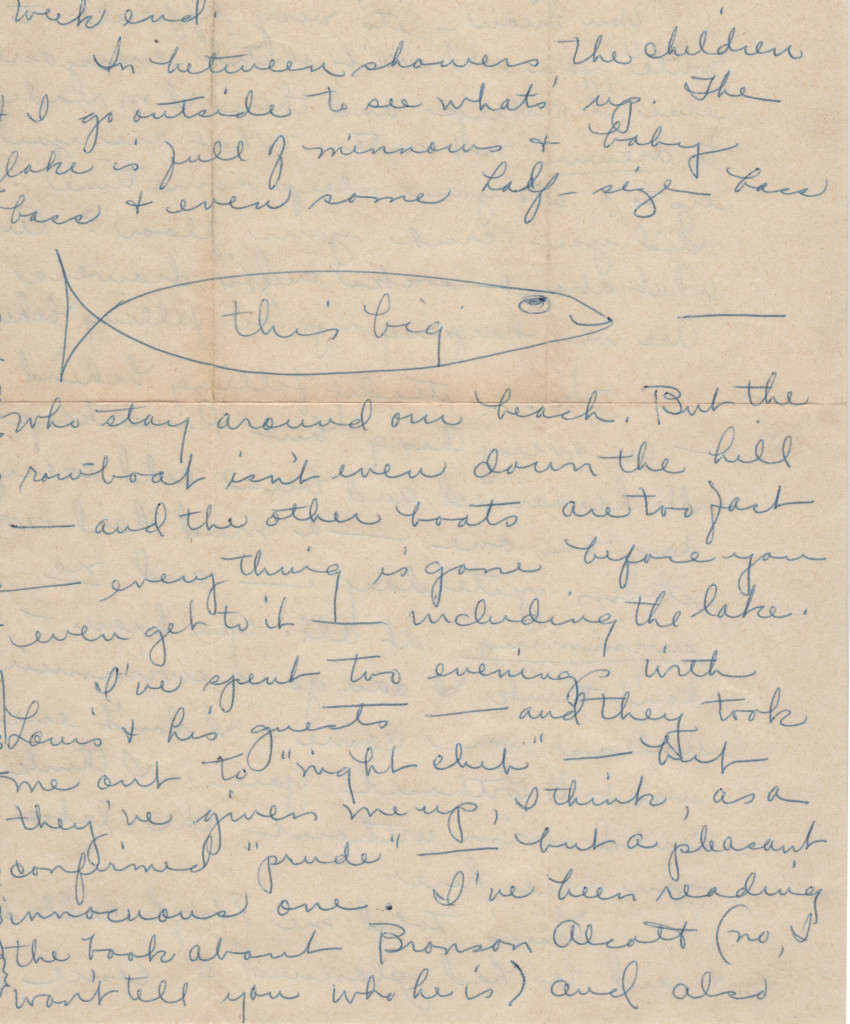 week end.
In between showers, the children
+ I go outside to see whats' up. The
lake is full of minnows + baby
bass + even some half-size bass
this big —
who stay around our beach. But the
rowboat isn't even down the hill
— and the other boats are too fast
— every thing is gone before you
even get to it — including the lake.
I've spent two evenings with
Louis + his guests — and they took
me out to "night club" — but
they've given me up, I think, as a
confirmed "prude" — but a pleasant
innocuous one. I've been reading
the book about Bronson Alcott (no, I
won't tell you who he is) and also